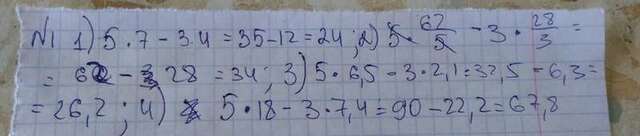 N1 1) 5·7 - 3·4 = 35-12 = 24; 2) 5·62/5 - 3·28/3 =
= 62 - 28 = 34; 3) 5·6,5 - 3·2,1 = 32,5 - 6,3 =
= 26,2; 4) 5·18 - 3·7,4 = 90 - 22,2 = 67,8